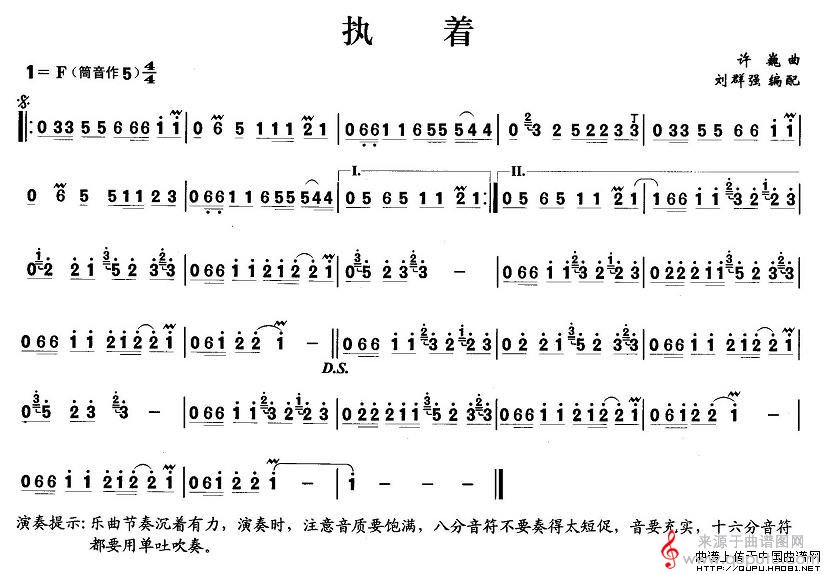 执 着
1= F (筒音作 5) 4/4
许 巍 曲
刘群强 编配
0 33 5 5 6 66 i i | 0 6 5 1 1 1 21 | 0 661 1 6 55 544 | 0 3 2 5 22 3 3 | 0 33 5 5 6 6 i i
I. II.
0 6 5 5 11 2 3 | 0 661 1 6 55 544 | 0 5 6 5 1 1 21 :| 0 5 6 5 1 1 21 | 1 66 i i 3 2 2 3
0 2 2 i 5 2 3 3 | 0 66 i i 2 i 2 2 i | 0 5 2 3 3 – | 0 66 i i 3 2 2 3 | 0 2 2 2 i i 5 2 3 3
0 66 i i 2 i 2 2 i | 0 6 i 2 2 i – || 0 66 i i 3 2 2 3
D.S.
0 5 2 3 3 – | 0 66 i i 3 2 2 3 | 0 2 2 2 i i 5 2 3 3 | 0 66 i i 2 i 2 2 i | 0 6 i 2 2 i –
0 66 i i 2 i 2 2 i | 0 6 i 2 2 i – | i – – ||
演奏提示: 乐曲节奏沉着有力，演奏时，注意音质要饱满，八分音符不要奏得太短促，音要充实，十六分音符
都要用单吐吹奏。
来源于曲谱图网
曲谱上传于中国曲谱网